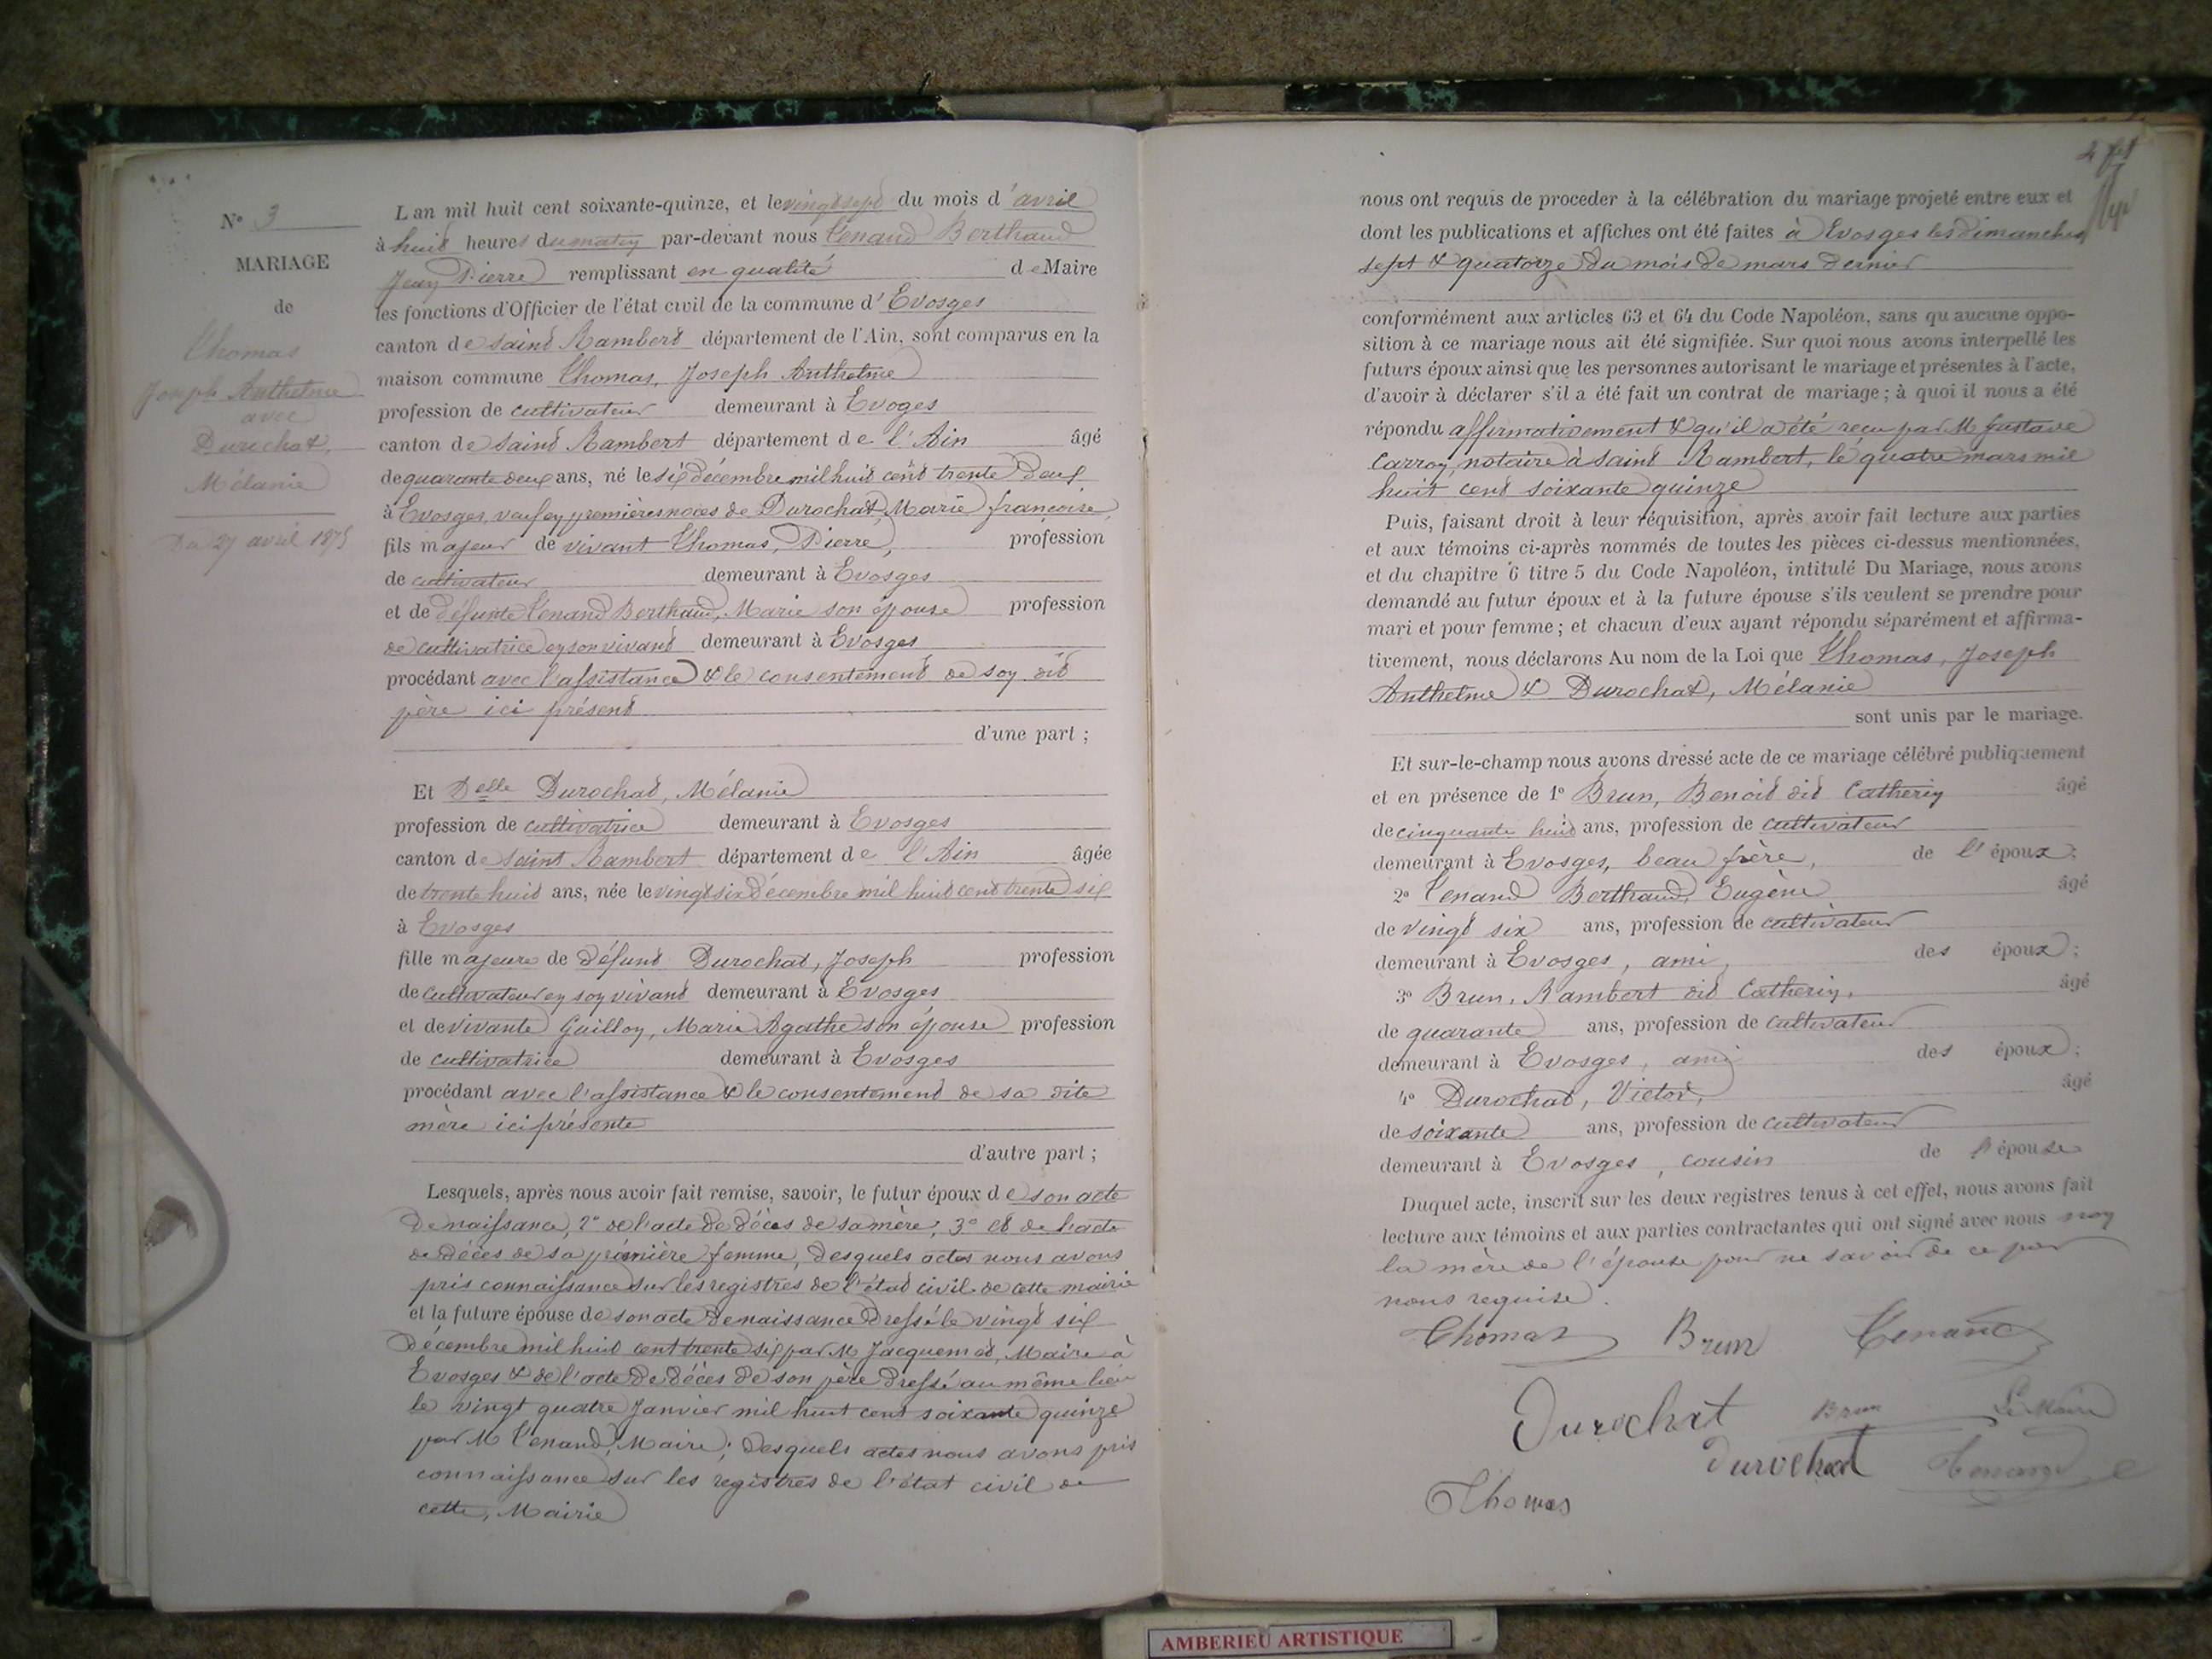 N° 3
MARIAGE
de
Thomas
Joseph Anthelme
avec
Durochat,
Mélanie
Du 27 avril 1875
L'an mil huit cent soixante-quinze, et le vingt sept du mois d'avril
à huit heures du matin par-devant nous Tenand Berthaud
Jean Pierre remplissant en qualité de Maire
les fonctions d'Officier de l'état civil de la commune d'Evosges
canton de Saint Rambert département de l'Ain, sont comparus en la
maison commune Thomas, Joseph Anthelme
profession de cultivateur demeurant à Evoges
canton de Saint Rambert département de l'Ain âgé
de quarante deux ans, né le six décembre mil huit cent trente deux
à Evosges, veuf en premières noces de Durochat, Marie françoise,
fils majeur de vivant Thomas, Pierre, profession
de cultivateur demeurant à Evosges
et de défunte Tenand Berthaud, Marie son épouse profession
de cultivatrice en son vivant demeurant à Evosges
procédant avec l'assistance & le consentement de son dit
père ici présent
d'une part ;
Et Delle Durochat, Mélanie
profession de cultivatrice demeurant à Evosges
canton de Saint Rambert département de l'Ain âgée
de trente huit ans, née le vingt six Décembre mil huit cent trente six
à Evosges
fille majeure de défunt Durochat, Joseph profession
de cultivateur en son vivant demeurant à Evosges
et de vivante Guillon, Marie Agathe son épouse profession
de cultivatrice demeurant à Evosges
procédant avec l'assistance & le consentement de sa dite
mère ici présente
d'autre part ;
Lesquels, après nous avoir fait remise, savoir, le futur époux de son acte
de naissance, 2° de l'acte de décès de sa mère, 3° et de l'acte
de décès de sa première femme, desquels actes nous avons
pris connaissance sur les registres de l'état civil de cette mairie
et la future épouse de son acte de naissance dressé le vingt six
décembre mil huit cent trente six par M Jacquemet, Maire à
Evosges & de l'acte de décès de son père dressé au même lieu
le vingt quatre Janvier mil huit cent soixante quinze
par M Tenand, Maire ; desquels actes nous avons pris
connaissance sur les registres de l'état civil de
cette, Mairie
nous ont requis de procéder à la célébration du mariage projeté entre eux et
dont les publications et affiches ont été faites à Evosges les dimanches
sept & quatorze du mois de mars dernier
conformément aux articles 63 et 64 du Code Napoléon, sans qu'aucune oppo-
sition à ce mariage nous ait été signifiée. Sur quoi nous avons interpellé les
futurs époux ainsi que les personnes autorisant le mariage et présentes à l'acte,
d'avoir à déclarer s'il a été fait un contrat de mariage ; à quoi il nous a été
répondu affirmativement & qu'il a été reçu par M Gustave
Carron, notaire à Saint Rambert, le quatre mars mil
huit cent soixante quinze
Puis, faisant droit à leur réquisition, après avoir fait lecture aux parties
et aux témoins ci-après nommés de toutes les pièces ci-dessus mentionnées,
et du chapitre 6 titre 5 du Code Napoléon, intitulé Du Mariage, nous avons
demandé au futur époux et à la future épouse s'ils veulent se prendre pour
mari et pour femme ; et chacun d'eux ayant répondu séparément et affirma-
tivement, nous déclarons Au nom de la Loi que Thomas, Joseph
Anthelme & Durochat, Mélanie
sont unis par le mariage.
Et sur-le-champ nous avons dressé acte de ce mariage célébré publiquement
et en présence de 1° Brun, Benoit dit Catherin âgé
de cinquante huit ans, profession de cultivateur
demeurant à Evosges, beau frère, de l'époux ;
2° Tenand Berthaud, Eugène âgé
de vingt six ans, profession de cultivateur
demeurant à Evosges, ami, des époux ;
3° Brun, Rambert dit Catherin, âgé
de quarante ans, profession de cultivateur
demeurant à Evosges, ami des époux ;
4° Durochat, Victor, âgé
de soixante ans, profession de cultivateur
demeurant à Evosges, cousin de l'épouse
Duquel acte, inscrit sur les deux registres tenus à cet effet, nous avons fait
lecture aux témoins et aux parties contractantes qui ont signé avec nous non
la mère de l'épouse pour ne savoir de ce par
nous requise.
Thomas Brun Tenand
Durochat Brun Le Maire
Durochat Tenand
Thomas
AMBERIEU ARTISTIQUE